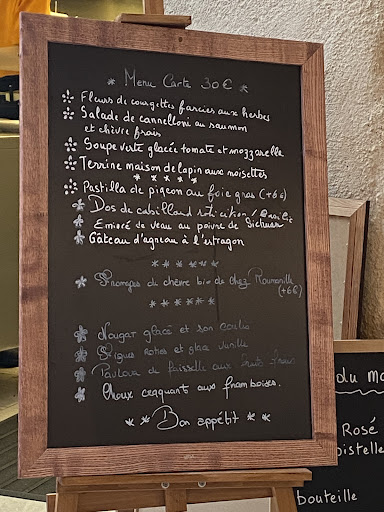 Menu Carte 30€
Fleurs de courgettes farcies aux herbes
Salade de cannelloni au saumon
et chèvre frais
Soupe verte glacée tomate et mozzarelle
Terrine maison de lapin aux noisettes
Pastilla de pigeon au foie gras (+6€)
Dos de cabillaud
Emincé de veau au poivre de Sichuan
Gâteau d'agneau à l'estragon
Fromages de chèvre bio de chez
(+6€)
Nougat glacé et son coulis
Figues roties et glace vanille
Pavlova de Faisselle aux fruits
Choux craquant aux framboises.
Bon appétit
du
Rosé
bouteille